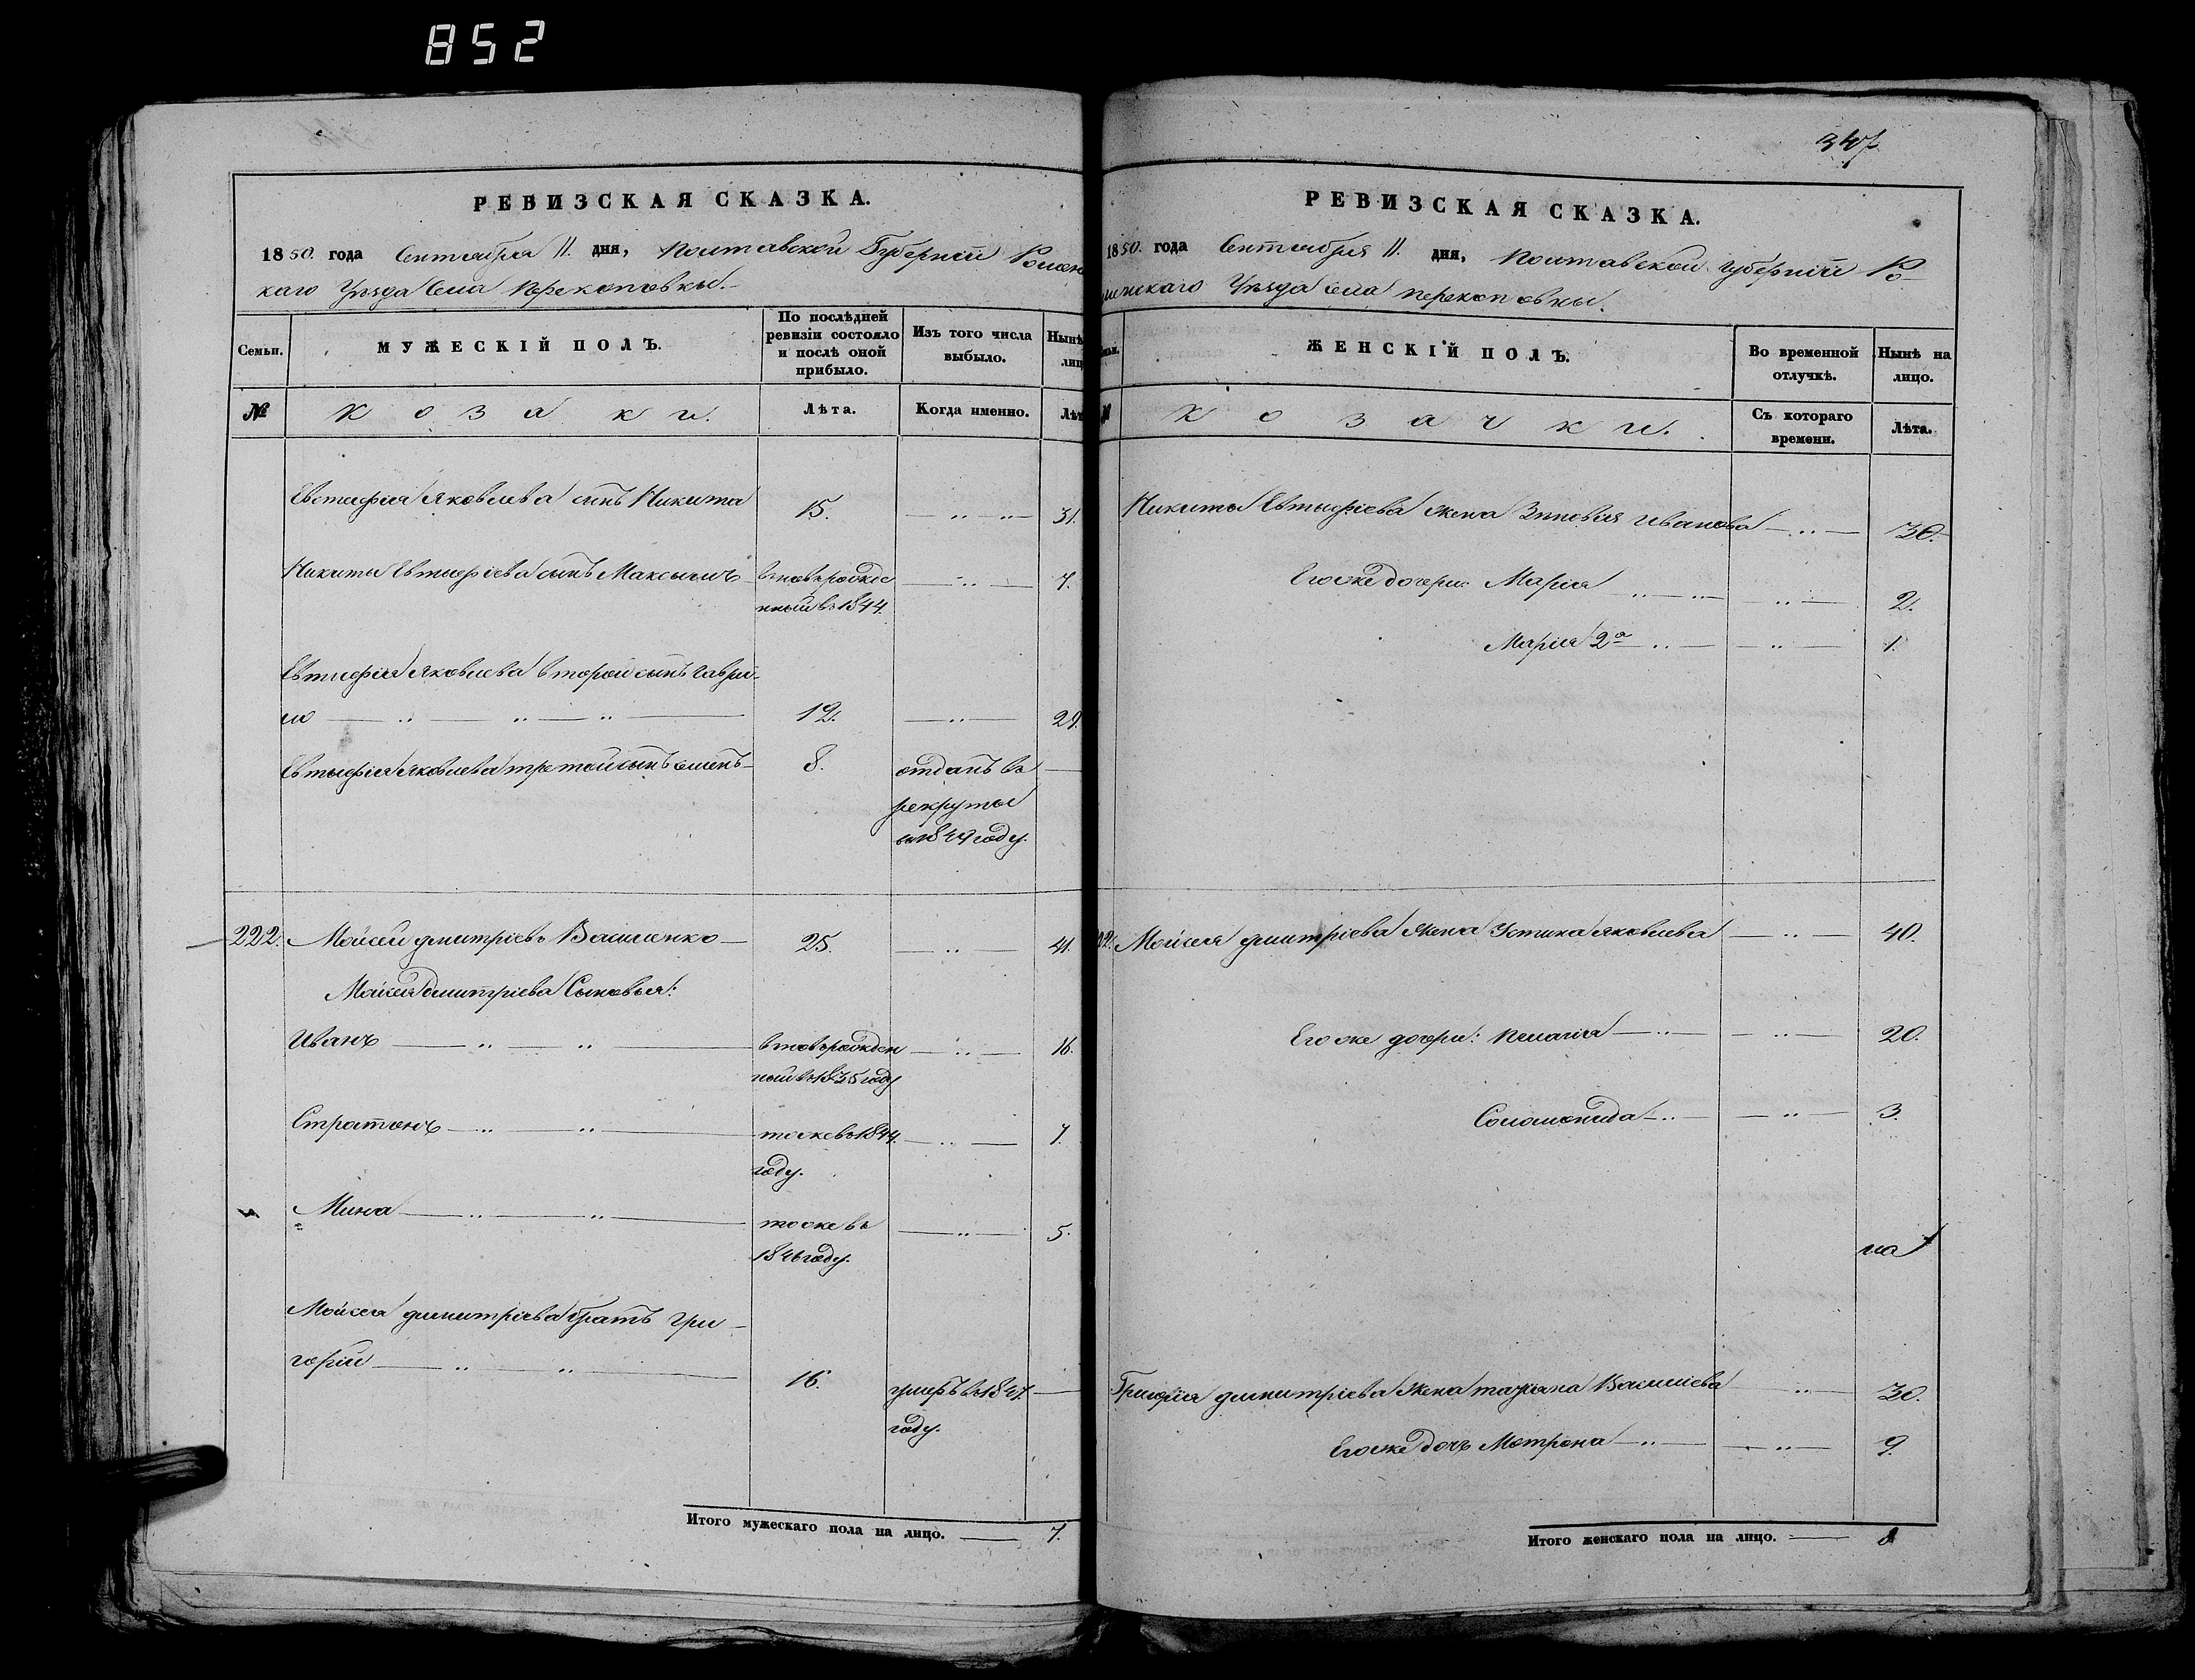 852
РЕВИЗСКАЯ СКАЗКА.
1850. года Сентября 11. дня, Полтавской Губернiи Ромен
каго Уѣзда Села Перекоповки.
Семьи.
МУЖЕСКIЙ ПОЛЪ.
По послѣдней ревизiи состояло и послѣ оной прибыло.
Изъ того числа выбыло.
Нынѣ
лиц
№
Козаки.
Лѣта.
Когда именно.
Лѣт
Евтифiя Яковлева сынъ Никита 15. 31.
Никиты Евтифiева сынъ Максимъ вновьрожде 7.
нный въ 1844.
Евтифiя Яковлева второй сынъ Гаври-
ло 12. 29.
Евтифiя Яковлева третой сынъ Семенъ 8. отданъ въ
рекруты
въ 1849 году.
222. Мойсей Дмитрiевъ Василенко 25. 41.
Мойсея Дмитрiева Сыновья:
Иванъ вновьрожден 16.
ный въ 1835 году
Стратонъ тоже въ 1844. 7.
году.
Мина тоже въ 5.
1846 году.
Мойсея Димитрiева братъ Гри-
горiй 16. умеръ въ 1847.
году.
Итого мужескаго пола на лицо. 7.
347
РЕВИЗСКАЯ СКАЗКА.
1850. года Сентября 11. дня, Полтавской Губернiи Ро-
менскаго Уѣзда Села Перекоповки.
ЖЕНСКIЙ ПОЛЪ.
Во временной отлучкѣ.
Нынѣ на лицо.
№
Козачки.
Съ котораго времени.
Лѣта.
Никиты Евтифiева жена Зиновiя Иванова 30.
Его же дочери: Марiя 2.
Марiя 2а 1.
Мойсея Дмитрiева Жена Устина Яковлева 40.
Его же дочери: Пелагiя 20.
Соломонида 3.
на
Григорiя Димитрiева Жена Татiяна Василiева 30.
Его же дочь Мотрона 9.
Итого женскаго пола на лицо. 8